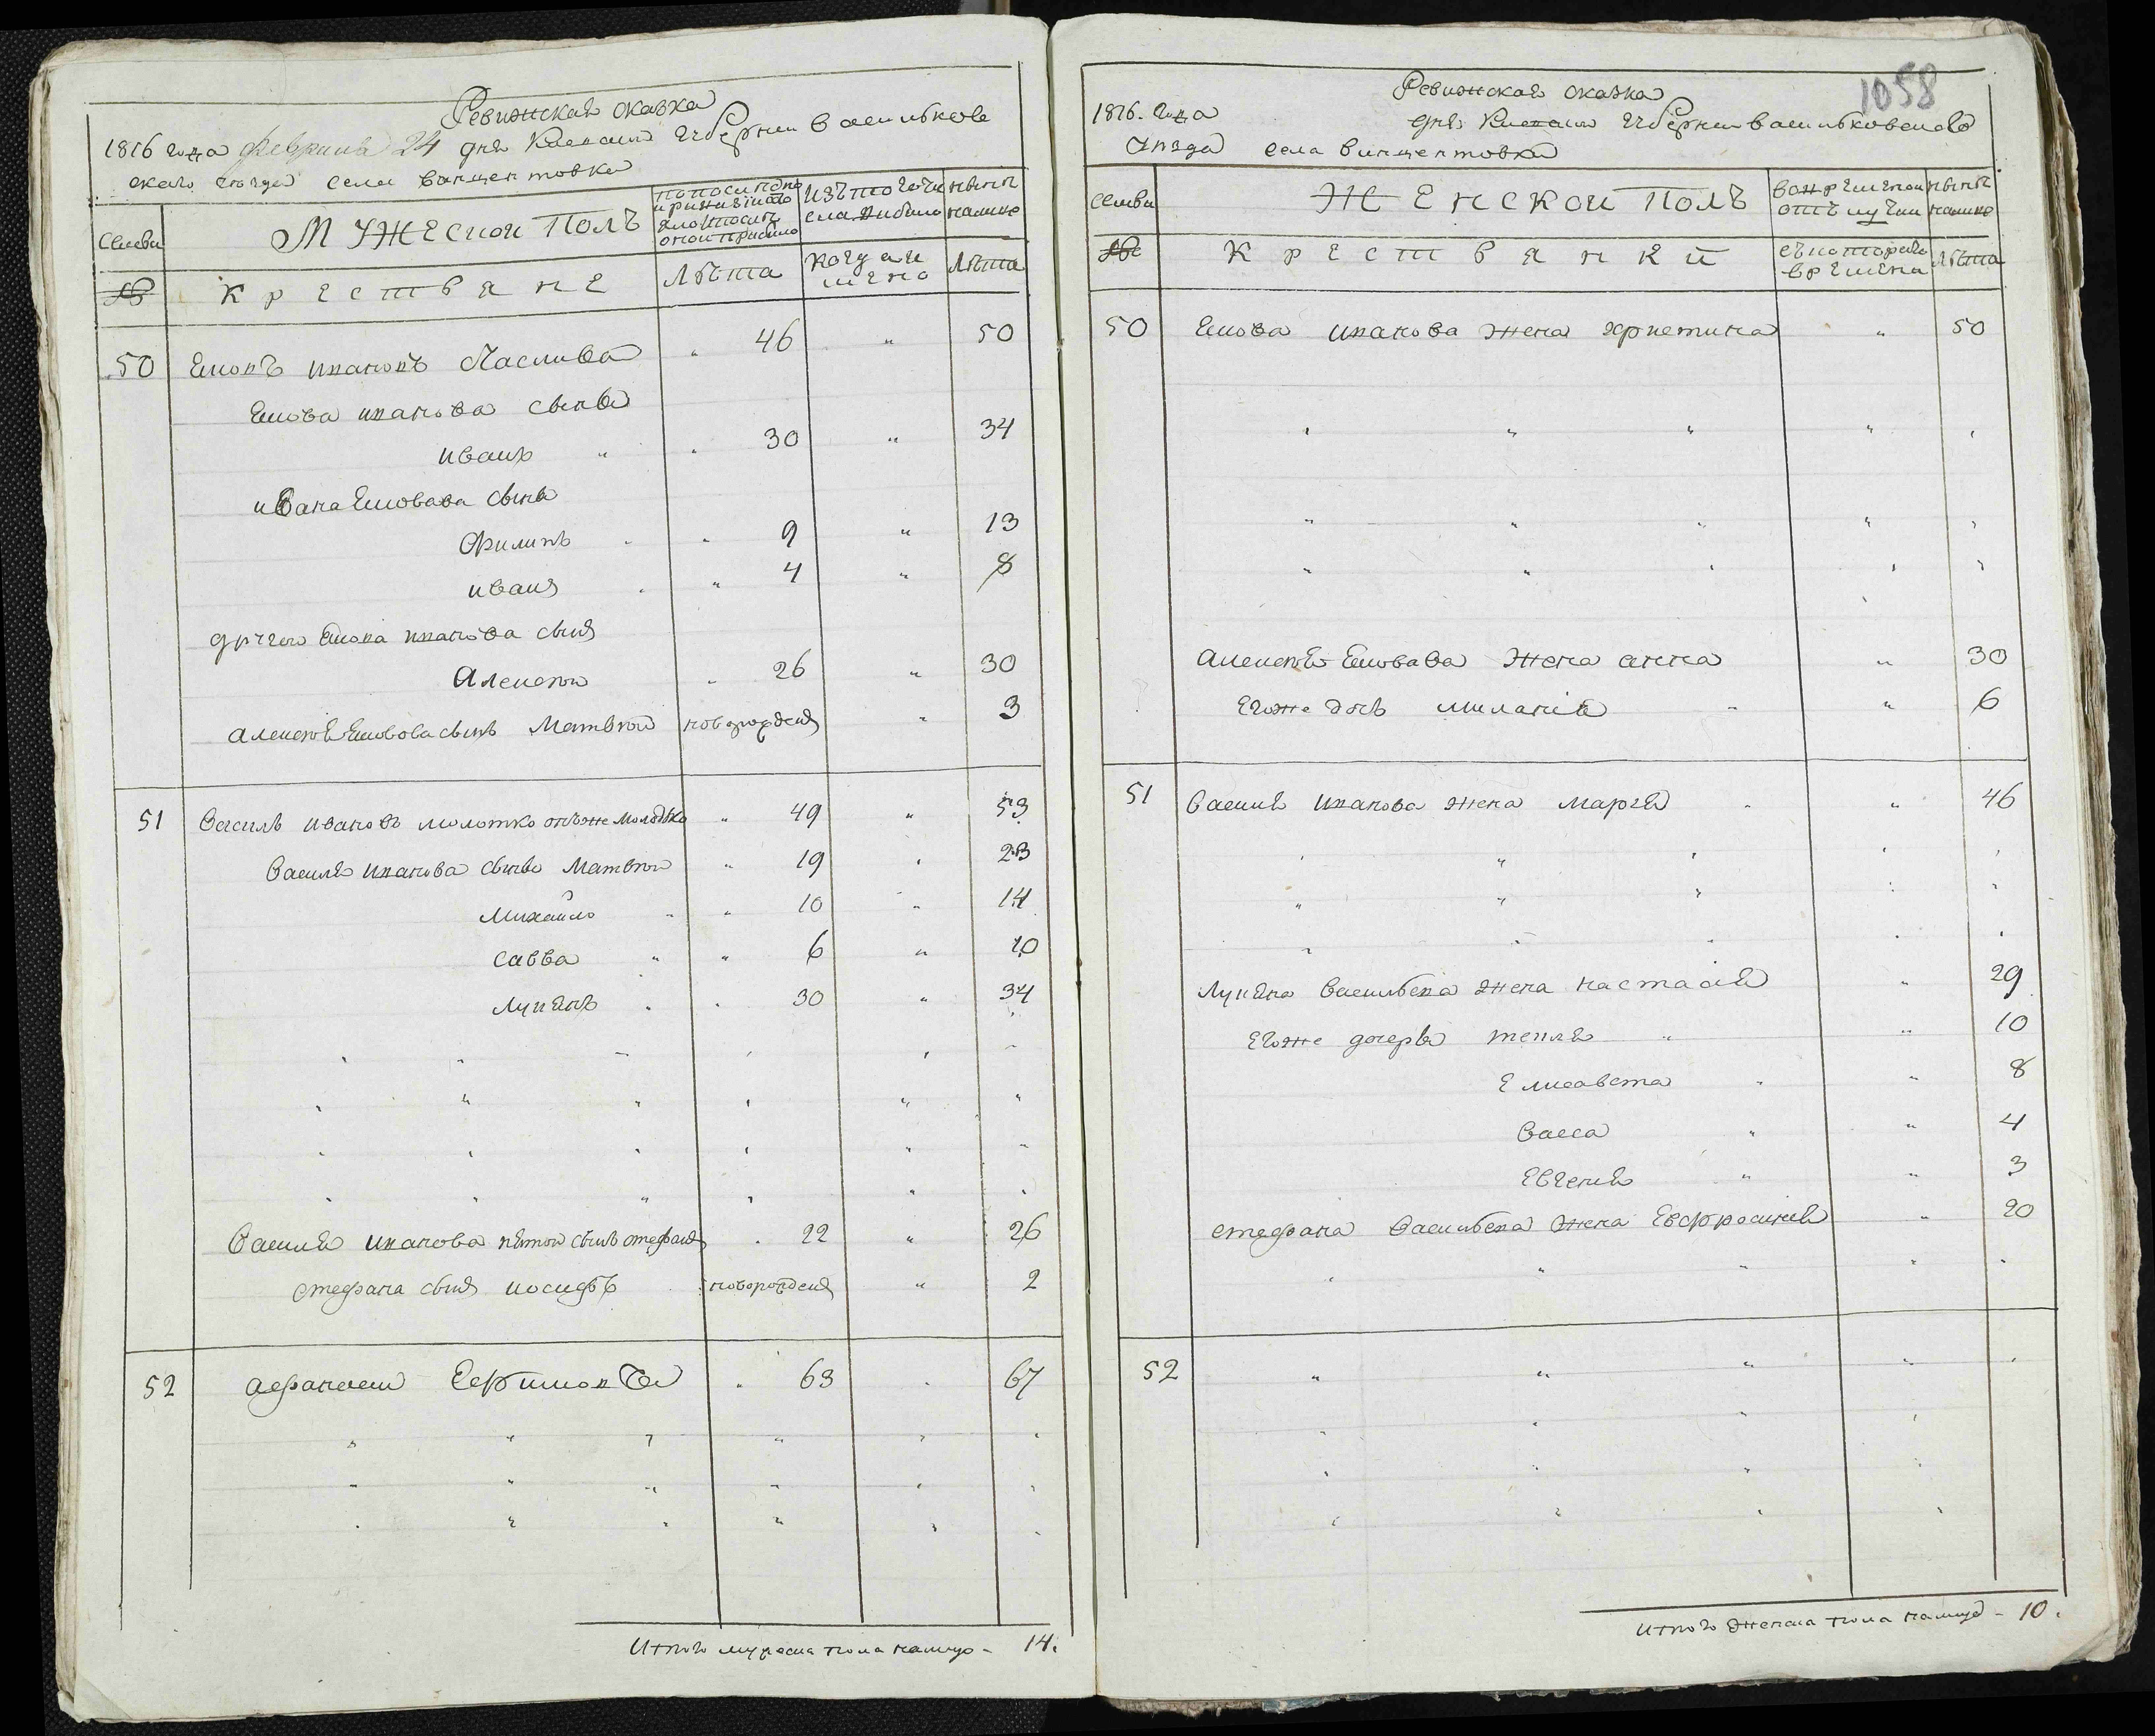 Ревижская сказка
1816 года февраля 24 дня Киевской Губернии васильков
скаго уезда села винцентовки
семьи
Мужеской Полъ
по последней ревизии состояло и после оной прибыло
изъ того числа выбыло
ныне налицо
№
Крестьяне
Лѣта
когда именно
Лѣта
50 Яковъ ивановъ Часлива " 46 " 50
Якова иванова сынъ
иванъ " " 30 " 34
ивана Якововва сынъ
Филипъ " " 9 " 13
иванъ " " 4 " 8
другой Якова иванова сынъ
Алексей " 26 " 30
алексея Якововва сынъ Матвѣй новорожденъ " 3
51 Василь ивановъ молотко онъ же Молодѣко " 49 " 53
Василя иванова сынъ Матвѣй " 19 " 23
Михайло " " 10 " 14
савва " " 6 " 10
Лукянъ " " 30 " 34
Василя иванова пятой сынъ стефанъ " 22 " 26
стефана сынъ иосифъ новорожденъ " 2
52 афанасей Ефимовъ " 63 " 67
Итого мужеска пола налицо - 14.
1058
Ревижская сказка
1816. года дня Киевской Губернии васильковскаго
Уезда села винцентовки
семьи
Женской Полъ
во временной отлучки
ныне налицо
№
Крестьянки
съ котораго времени
Лѣта
50 Якова иванова жена христина " 50
алексея Якововва жена анна " 30
его же дочь миланія " " 6
51 Василя иванова жена марія " " 46
Лукяна васильева жена настасія " 29
его же дочеря текля " " 10
елисавета " " 8
васса " " 4
евгения " " 3
стефана васильева жена евфросиния " 20
52
Итого женска пола налицо - 10.